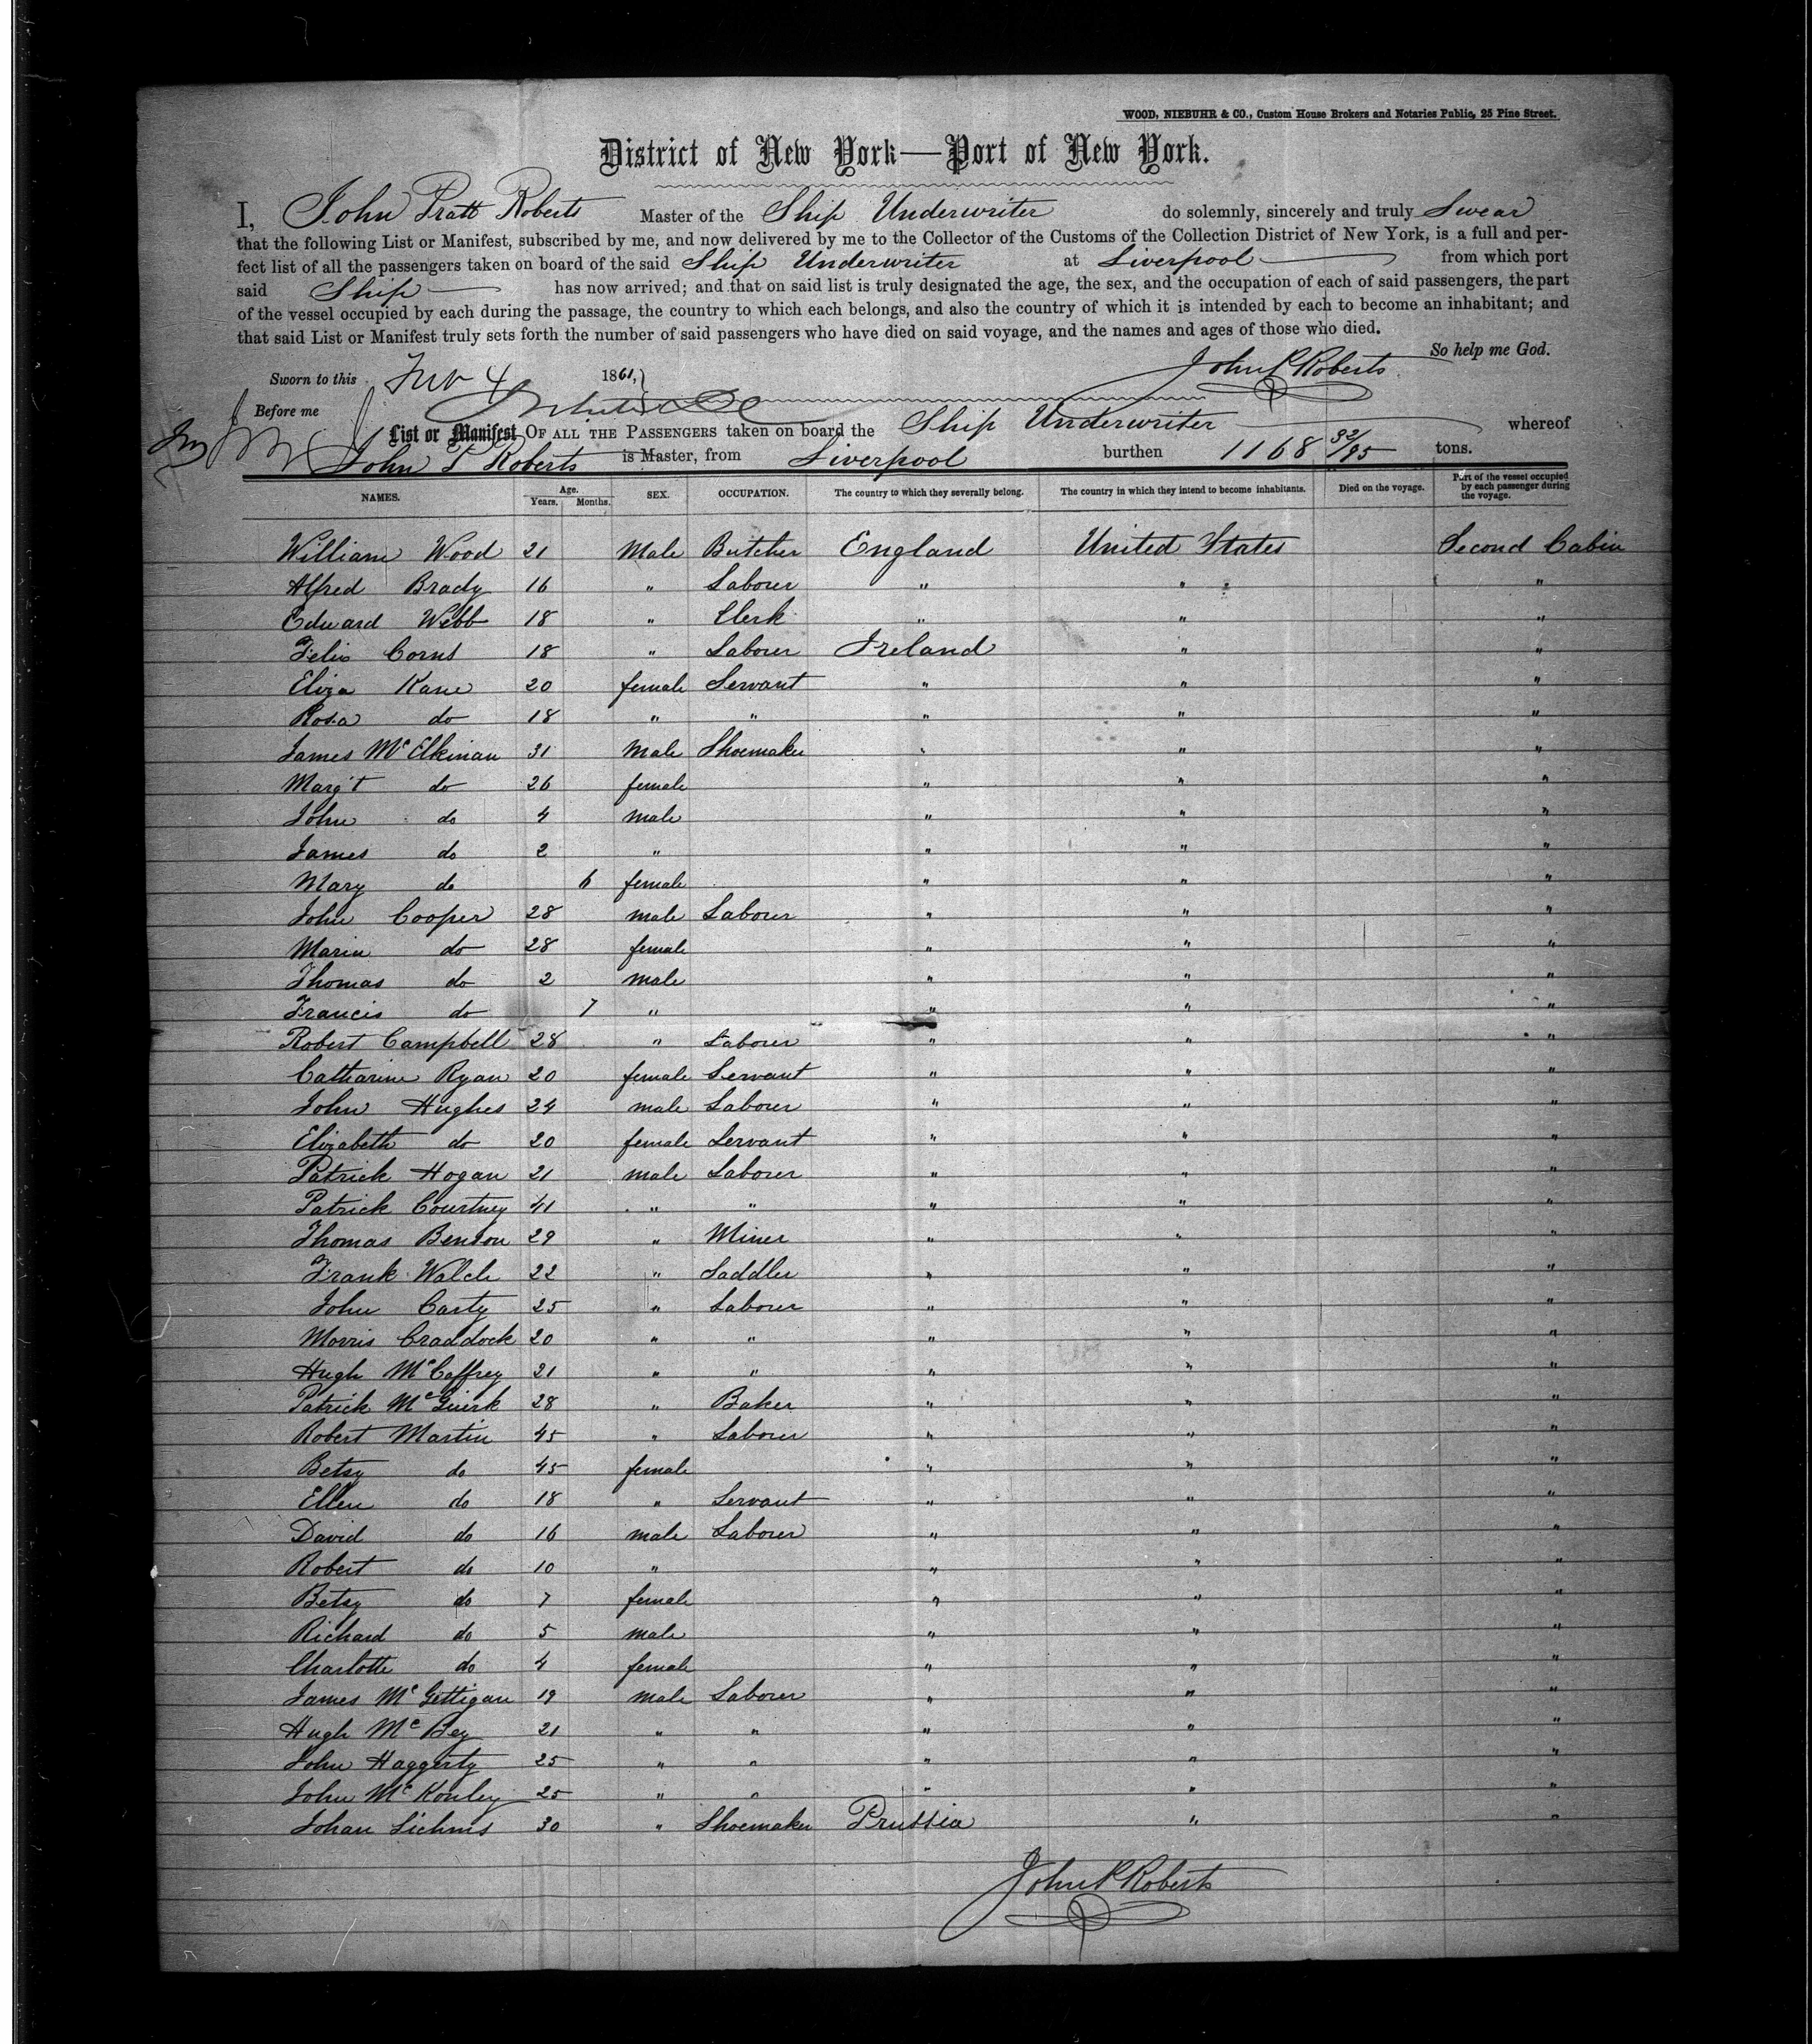 WOOD, NIEBUHR & CO., Custom House Brokers and Notaries Public, 25 Pine Street.
District of New York—Port of New York.
I, John Pratt Roberts Master of the Ship Underwriter do solemnly, sincerely and truly Swear
that the following List or Manifest, subscribed by me, and now delivered by me to the Collector of the Customs of the Collection District of New York, is a full and per-
fect list of all the passengers taken on board of the said Ship Underwriter at Liverpool from which port
said Ship has now arrived; and that on said list is truly designated the age, the sex, and the occupation of each of said passengers, the part
of the vessel occupied by each during the passage, the country to which each belongs, and also the country of which it is intended by each to become an inhabitant; and
that said List or Manifest truly sets forth the number of said passengers who have died on said voyage, and the names and ages of those who died.
So help me God.
Sworn to this 4 1861, John P Roberts
Before me
List or Manifest OF ALL THE PASSENGERS taken on board the Ship Underwriter whereof
John P Roberts is Master, from Liverpool burthen 1168 32/95 tons.
NAMES. Age. Years. Months. SEX. OCCUPATION. The country to which they severally belong. The country in which they intend to become inhabitants. Died on the voyage. Part of the vessel occupied by each passenger during the voyage.
William Wood 21 Male Butcher England United States Second Cabin
Alfred Brady 16 " Laborer " " "
Edward Webb 18 " Clerk " " "
Felix Corns 18 " Laborer Ireland " "
Eliza Kane 20 female Servant " " "
Rosa do 18 " " " " "
James McElkinan 31 Male Shoemaker " " "
Marg't do 26 female " " "
John do 4 male " " "
James do 2 " " " "
Mary do 6 female " " "
John Cooper 28 male Laborer " " "
Maria do 28 female " " "
Thomas do 2 male " " "
Francis do 7 " " " "
Robert Campbell 28 " Laborer " " "
Catharine Ryan 20 female Servant " " "
John Hughes 24 male Laborer " " "
Elizabeth do 20 female Servant " " "
Patrick Hogan 21 male Laborer " " "
Patrick Courtney 41 " " " " "
Thomas Benson 29 " Miner " " "
Frank Walch 22 " Saddler " " "
John Carty 25 " Laborer " " "
Morris Craddock 20 " " " " "
Hugh McCaffrey 21 " " " " "
Patrick McGuirk 28 " Baker " " "
Robert Martin 45 " Laborer " " "
Betsy do 45 female " " "
Ellen do 18 " Servant " " "
David do 16 male Laborer " " "
Robert do 10 " " " "
Betsy do 7 female " " "
Richard do 5 male " " "
Charlotte do 4 female " " "
James McGettigan 19 male Laborer " " "
Hugh McBey 21 " " " " "
John Haggerty 25 " " " " "
John McKonley 25 " " " " "
Johan Lichms 30 " Shoemaker Prussia " "
John P Roberts